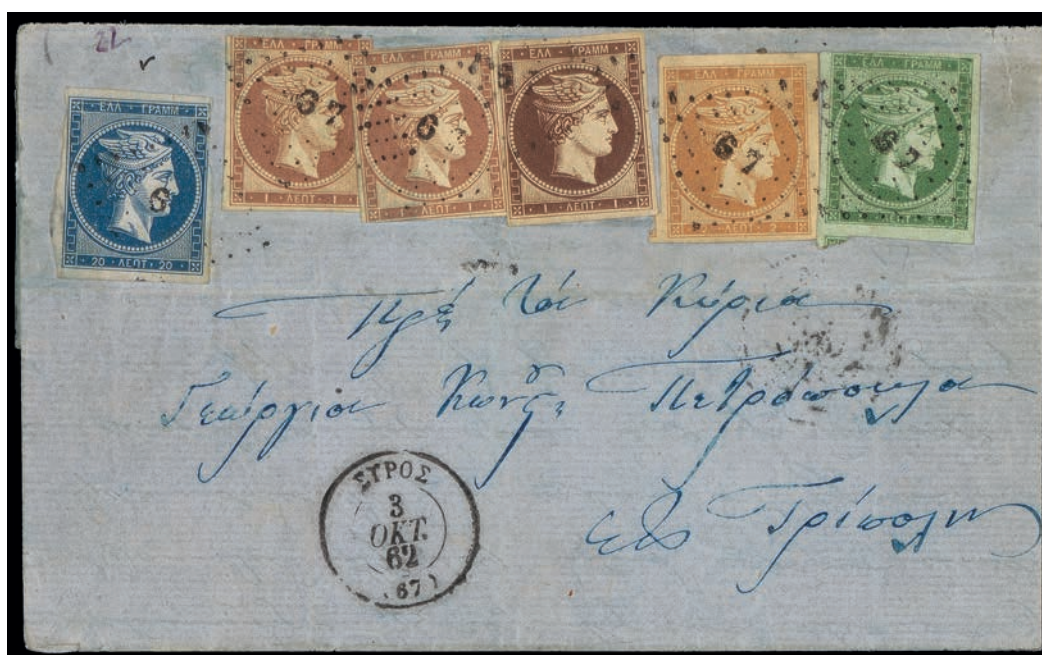 22
ΕΛΛ · ΓΡΑΜΜ
20 · ΛΕΠΤ · 20
6
ΕΛΛ · ΓΡΑΜΜ
1 · ΛΕΠΤ · 1
67
ΕΛΛ · ΓΡΑΜΜ
1 · ΛΕΠΤ · 1
6
ΕΛΛ · ΓΡΑΜΜ
1 · ΛΕΠΤ · 1
ΕΛΛ · ΓΡΑΜΜ
2 · ΛΕΠΤ · 2
67
ΕΛΛ · ΓΡΑΜΜ
67
Κύριον
Γεώργιον Πετρόπουλον
Τρίπολιν
ΣΥΡΟΣ
3
ΟΚΤ.
62
(67)